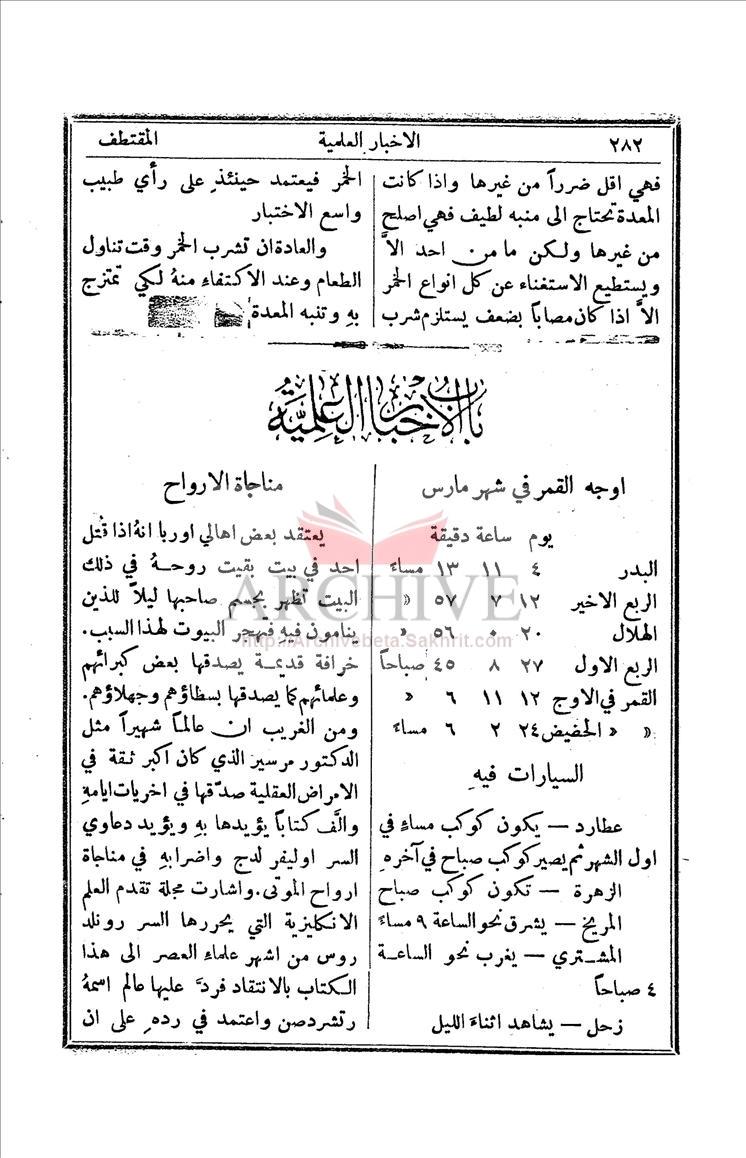 ٢٨٢ الاخبار العلمية المقتطف
فهي اقل ضرراً من غيرها واذا كانت
المعدة تحتاج الى منبه لطيف فهي اصلح
من غيرها ولكن ما من احد الاَّ
ويستطيع الاستغناء عن كل انواع الخمر
الاَّ اذا كان مصاباً بضعف يستلزم شرب
الخمر فيعتمد حينئذٍ على رأي طبيب
واسع الاختبار
والعادة ان تشرب الخمر وقت تناول
الطعام وعند الاكتفاء منهُ لكي تمتزج
بهِ وتنبه المعدة
باب الاخبار العلمية
اوجه القمر في شهر مارس
يوم ساعة دقيقة
البدر ٤ ١١ ١٣ مساءً
الربع الاخير ١٢ ٧ ٥٧ «
الهلال ٢٠ ٠ ٥٦ «
الربع الاول ٢٧ ٨ ٤٥ صباحاً
القمر في الاوج ١٢ ١١ ٦ «
« « الحضيض ٢٤ ٢ ٦ مساءً
السيارات فيهِ
عطارد — يكون كوكب مساءٍ في
اول الشهر ثم يصير كوكب صباح في آخرهِ
الزهرة — تكون كوكب صباح
المريخ — يشرق نحو الساعة ٩ مساءً
المشتري — يغرب نحو الساعة
٤ صباحاً
زحل — يشاهد اثناء الليل
مناجاة الارواح
يعتقد بعض اهالي اوربا انهُ اذا قُتل
احد في بيت بقيت روحهُ في ذلك
البيت تظهر بجسم صاحبها ليلاً للذين
ينامون فيهِ فيهجر البيوت لهذا السبب.
خرافة قديمة يصدقها بعض كبرائهم
وعلمائهم كما يصدقها بسطاؤهم وجهلاؤهم.
ومن الغريب ان عالماً شهيراً مثل
الدكتور مرسير الذي كان اكبر ثقة في
الامراض العقلية صدّقها في اخريات ايامهِ
والَّف كتاباً يؤيدها بهِ ويؤيد دعاوي
السر اوليفر لدج واضرابهِ في مناجاة
ارواح الموتى. واشارت مجلة تقدم العلم
الانكليزية التي يحررها السر رونلد
روس من اشهر علماء العصر الى هذا
الكتاب بالانتقاد فردَّ عليها عالم اسمهُ
رتشردصن واعتمد في ردهِ على ان
ARCHIVE
http://Archivebeta.Sakhrit.com